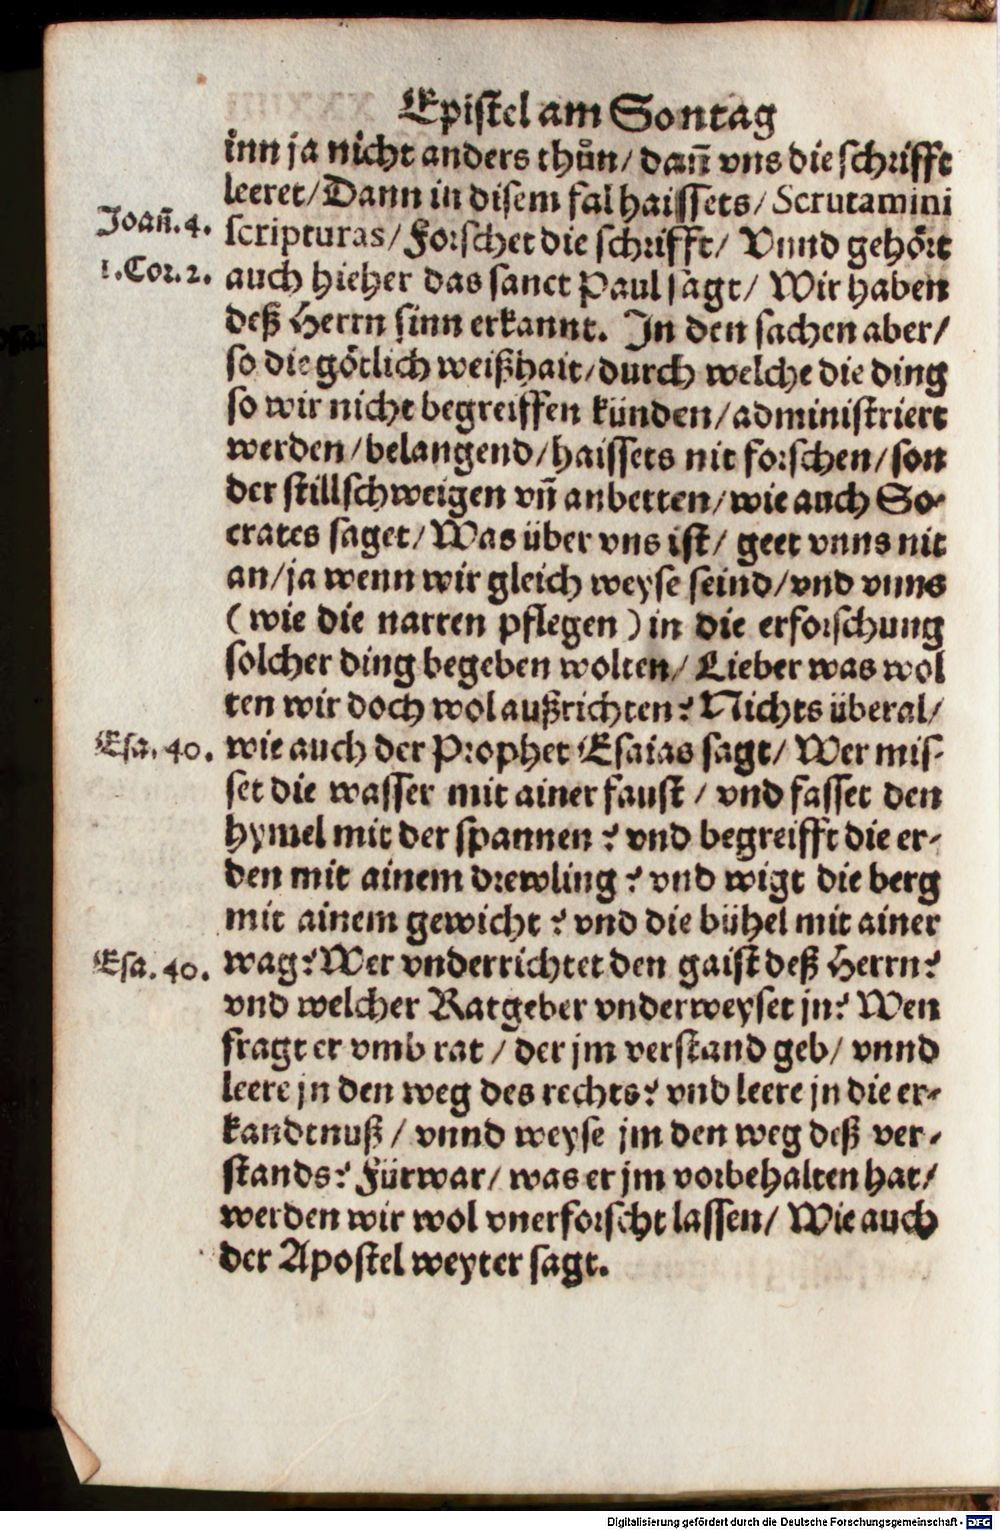 Epistel am Sontag
inn ja nicht anders thůn/ dañ vns die schrifft
leeret/ Dann in disem fal haissets/ Scrutamini
Joañ. 4.
scripturas/ Forschet die schrifft/ Vnnd gehört
1. Cor. 2.
auch hieher das sanct Paul sagt/ Wir haben
deß Herrn sinn erkannt. In den sachen aber/
so die götlich weißhait/ durch welche die ding
so wir nicht begreiffen künden/ administriert
werden/ belangend/ haissets nit forschen/ son
der stillschweigen vñ anbetten/ wie auch So-
crates saget/ Was über vns ist/ geet vnns nit
an/ ja wenn wir gleich weyse seind/ vnd vnns
(wie die narren pflegen) in die erforschung
solcher ding begeben wolten/ Lieber was wol
ten wir doch wol außrichten? Nichts überal/
Esa. 40.
wie auch der Prophet Esaias sagt/ Wer mis-
set die wasser mit ainer faust / vnd fasset den
hymel mit der spannen? vnd begreifft die er-
den mit ainem drewling? vnd wigt die berg
mit ainem gewicht? vnd die bühel mit ainer
Esa. 40.
wag? Wer vnderrichtet den gaist deß Herrn?
vnd welcher Ratgeber vnderweyset jn? Wen
fragt er vmb rat / der jm verstand geb/ vnnd
leere jn den weg des rechts? vnd leere jn die er-
kandtnuß / vnnd weyse jm den weg deß ver-
stands? Fürwar/ was er jm vorbehalten hat/
werden wir wol vnerforscht lassen/ Wie auch
der Apostel weyter sagt.
Digitalisierung gefördert durch die Deutsche Forschungsgemeinschaft - DFG